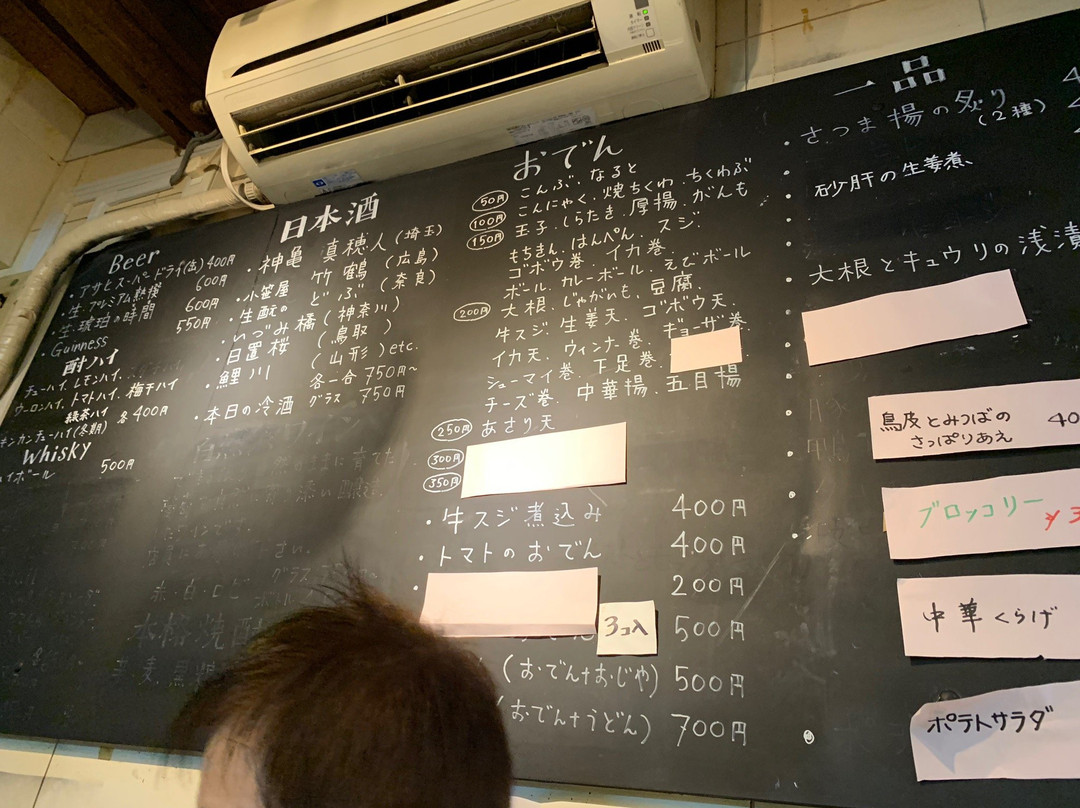 Beer
・アサヒスーパードライ(缶) 400円
・生.プレミアム熟撰 600円
・生.琥珀の時間 600円
・Guinness 550円
酎ハイ
チューハイ、レモンハイ、
ウーロンハイ、トマトハイ、梅干ハイ
緑茶ハイ 各400円
キンカンチューハイ(冬期)
Whisky
ハイボール 500円
日本酒
・神亀 真穂人 (埼玉)
・小笹屋 竹鶴 (広島)
・生酛の どぶ (奈良)
・いづみ橘 (神奈川)
・日置桜 (鳥取)
・鯉川 (山形) etc.
各一合 750円~
・本日の冷酒 グラス 750円
おでん
50円 こんぶ、なると
100円 こんにゃく、焼ちくわ、ちくわぶ
150円 玉子、しらたき、厚揚、がんも
もちきん、はんぺん、スジ、
ゴボウ巻、イカ巻、
ボール、カレーボール、えびボール
200円 大根、じゃがいも、豆腐、
牛スジ、生姜天、ゴボウ天、
イカ天、ウィンナ巻、ギョーザ巻、
シューマイ巻、下足巻、
チーズ巻、中華揚、五目揚
250円 あさり天
300円
350円
・牛スジ煮込み 400円
・トマトのおでん 400円
200円
3コ入 500円
(おでん+おじや) 500円
(おでん+うどん) 700円
一品
・さつま揚の炙り
(2種)
砂肝の生姜煮、
大根とキュウリの浅漬
鳥皮とみつばの
さっぱりあえ
ブロッコリー
中華くらげ
ポテトサラダ